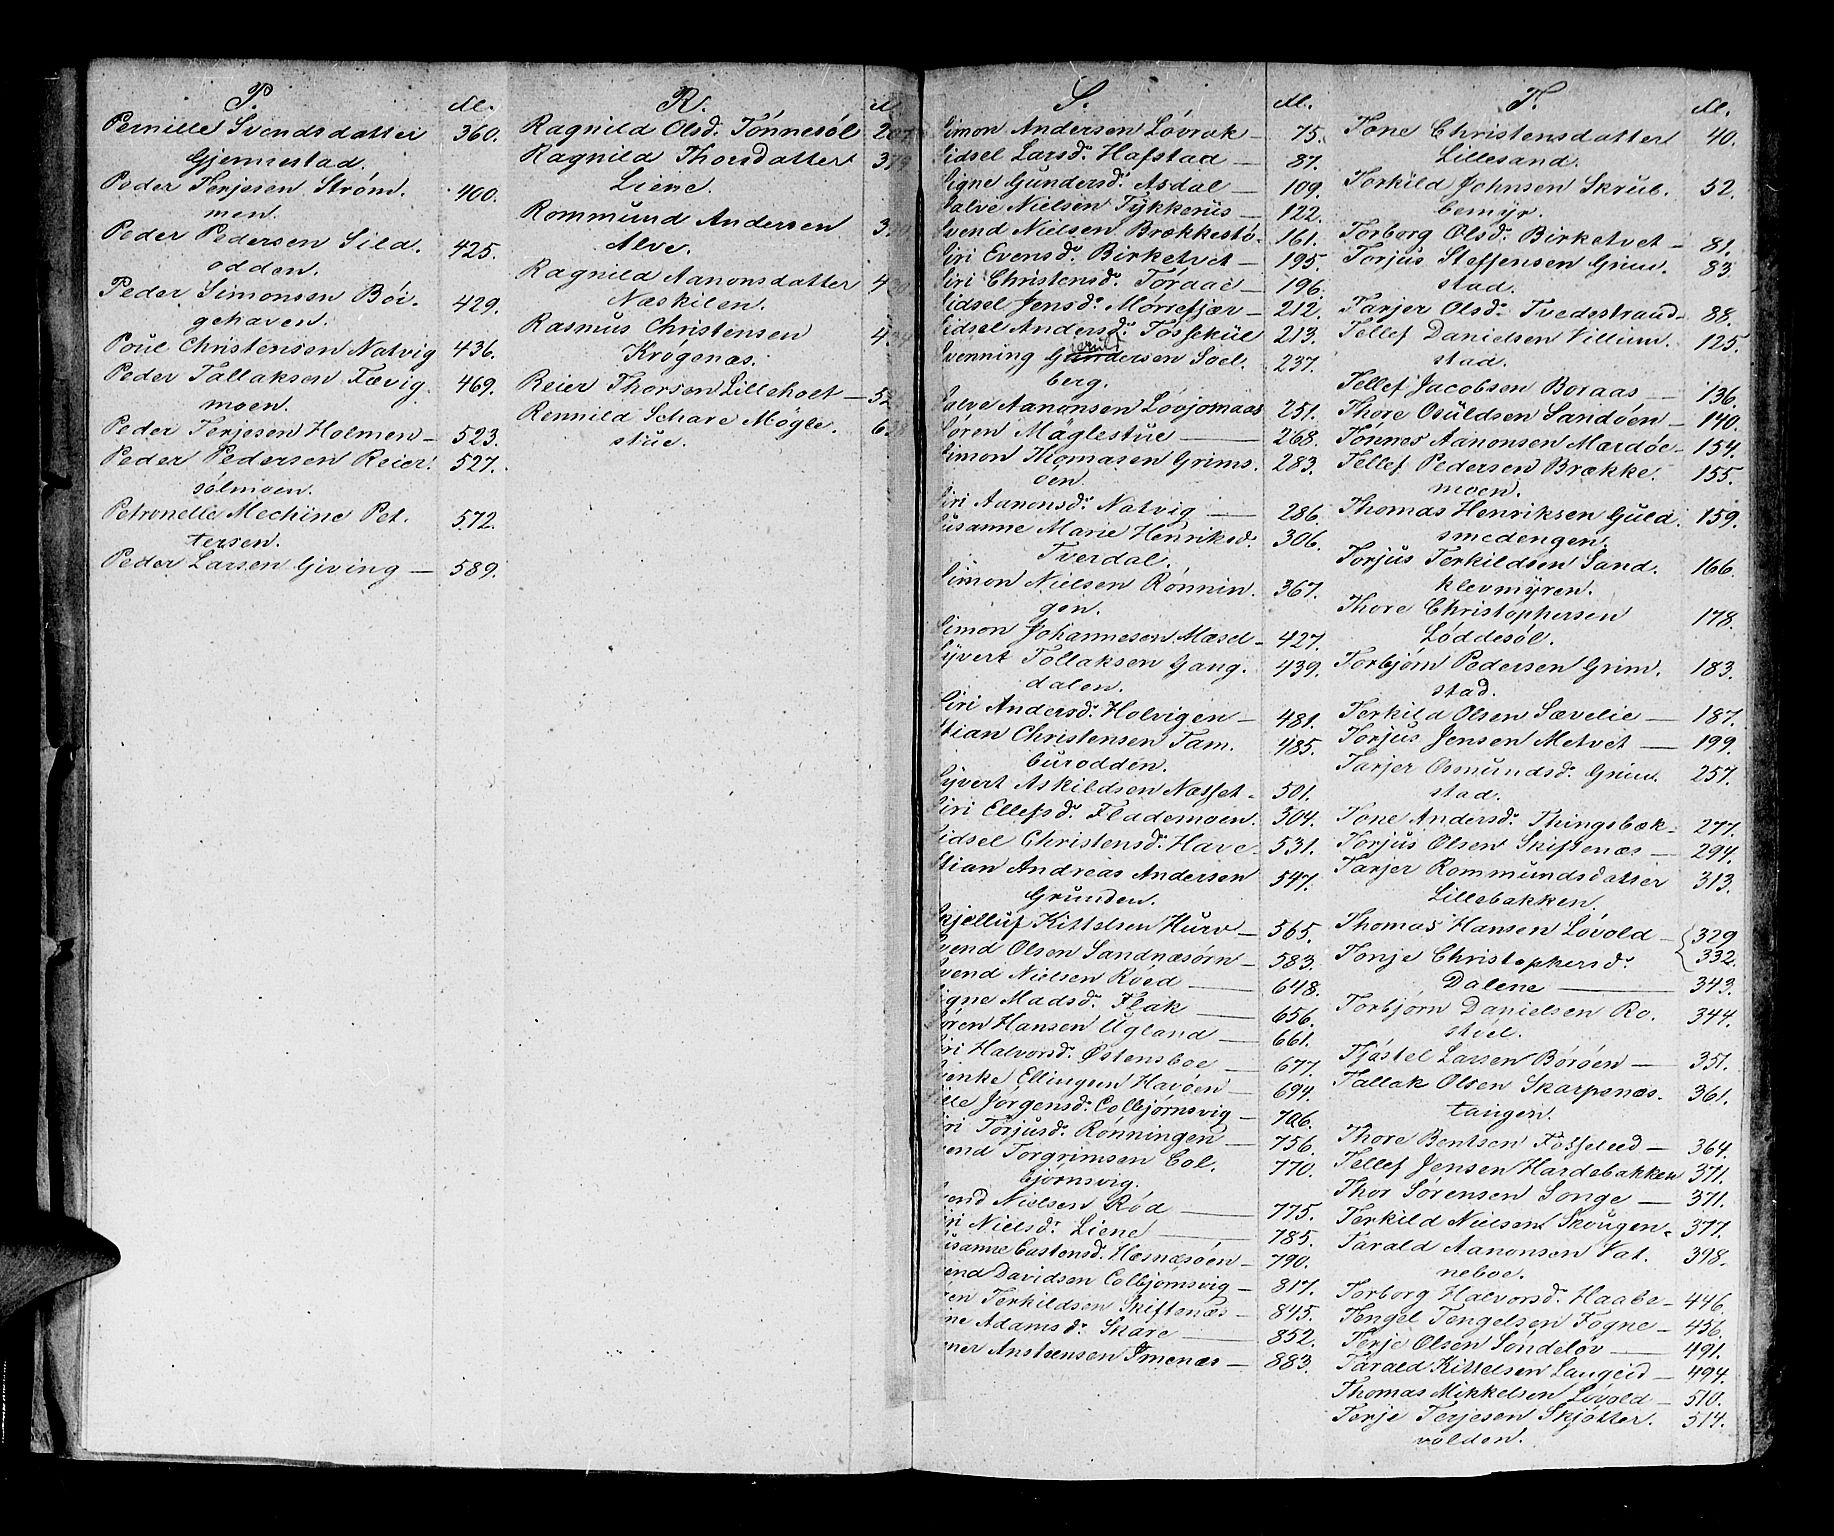 P.
Pernille Svendsdatter 360.
Gjennestad.
Peder Terjesen Strøm. 400.
men.
Peder Pedersen Sild. 425.
odden.
Peder Simonsen Bör. 429.
gehaven.
Poul Christensen Natvig 436.
Peder Tallaksen Fævig. 469.
moen.
Peder Terjesen Holmen 523.
Peder Pedersen Reier. 527.
sölmoen.
Petronelle Mechine Pet. 572.
tersen.
Peder Larsen Giving — 589.
R.
Ragnild Olsd. Tönnesöl
Ragnild Thorsdatter
Liene.
Rommund Andersen
Alve.
Ragnild Aanonsdatter
Næskilen.
Rasmus Christensen
Krögenæs.
Reier Thorsen Lilleholt
Rennild Schare Mögle.
stue.
S.
Simon Andersen Lövrak — 75.
Sidsel Larsd. Hafstad — 87.
Signe Gundersd. Asdal — 109.
Salve Nielsen Tykkeriis — 122.
Svend Nielsen Brækkestö. 161.
Siri Evensd. Birketvet — 195.
Siri Christensd. Töraae — 196.
Sidsel Jensd. Mörrefjær — 212.
Sidsel Andersd. Fosseküil 213.
Svenning Gundersen Soel. 237.
berg.
Salve Aanonsen Lövjomaas 251.
Sören Møglestue — 268.
Simon Thomasen Grims. 283.
öen.
Siri Aanonsd. Natvig — 286.
Susanne Marie Henriksd. 306.
Tverdal.
Simon Nielsen Rönnin. 367.
gen.
Simon Johannesen Mæsel — 427.
Syvert Tollaksen Gang. 439.
dalen.
Siri Andersd. Holvigen — 481.
Stian Christensen Tam. 485.
burodden.
Syvert Askildsen Næsset. 501.
Siri Ellefsd. Flademoen. 504.
Sidsel Christensd. Have — 531.
Stian Andreas Andersen 547.
Grunden.
Skjelluf Kittelsen Hurv — 565.
Svend Olsen Sandnæsörn — 583.
Svend Nielsen Röed — 648.
Signe Madsd. Flak — 656.
Sören Hansen Ugland — 661.
Siri Halvorsd. Østensboe — 677.
Svenke Ellingsen Havöen — 694.
Sille Jörgensd. Colbjørnsvig — 706.
Siri Torjusd. Rönningen — 756.
Svend Torgrimsen Col. 770.
bjørnsvig.
Svend Nielsen Röd — 775.
Siri Nielsd. Liene — 785.
Susanne Carstensd. Hæsnæsöen — 790.
Svend Davidsen Colbjørnsvig — 817.
Terkildsen Skiftenæs — 845.
Adamsd. Skare — 852.
Anstensen Imenæs — 883.
T.
Tone Christensdatter 40.
Lillesand.
Torkild Johnsen Skrub. 52.
bemyr.
Torborg Olsd. Birketvet — 81.
Torjus Steffensen Grim. 83.
stad.
Tarjer Olsd. Tvedestrand — 88.
Tellef Danielsen Villum. 125.
stad.
Tellef Jacobsen Boraas — 136.
Thore Osuldsen Sandöen — 140.
Tönnes Aanonsen Mardöe — 154.
Tellef Pedersen Brække. 155.
moen.
Thomas Henriksen Guld. 159.
smedengen.
Torjus Terkildsen Sand. 166.
klevmyren.
Thore Christophersen 178.
Löddesöl.
Torbjörn Pedersen Grim. 183.
stad.
Terkild Olsen Sævelie — 187.
Torjus Jensen Metvet — 199.
Tarjer Osmundsd. Grim. 257.
stad.
Tone Andersd. Thingsbæk — 277.
Torjus Olsen Skiftenæs — 294.
Tarjer Rommundsdatter 313.
Lillebakken.
Thomas Hansen Lövold — 329
332.
Tonje Christophersd.
Dalene — 343.
Torbjörn Danielsen Ro. 344.
stöl.
Tjöstel Larsen Börøen — 351.
Tallak Olsen Skarpsnæs. 361.
tangen.
Thore Bentsen Fosseled — 364.
Tellef Jensen Hardebakken 371.
Thor Sörensen Songe — 371.
Terkild Nielsen Skougen 377.
Tarald Aanonsen Vat. 398.
neboe.
Torborg Halvorsd. Haabe — 446.
Tengel Tengelsen Fogne — 456.
Terje Olsen Söndelöv — 491.
Tarald Kittelsen Laugeid — 494.
Thomas Mikkelsen Lövold — 510.
Terje Terjesen Skjötter. 514.
volden.